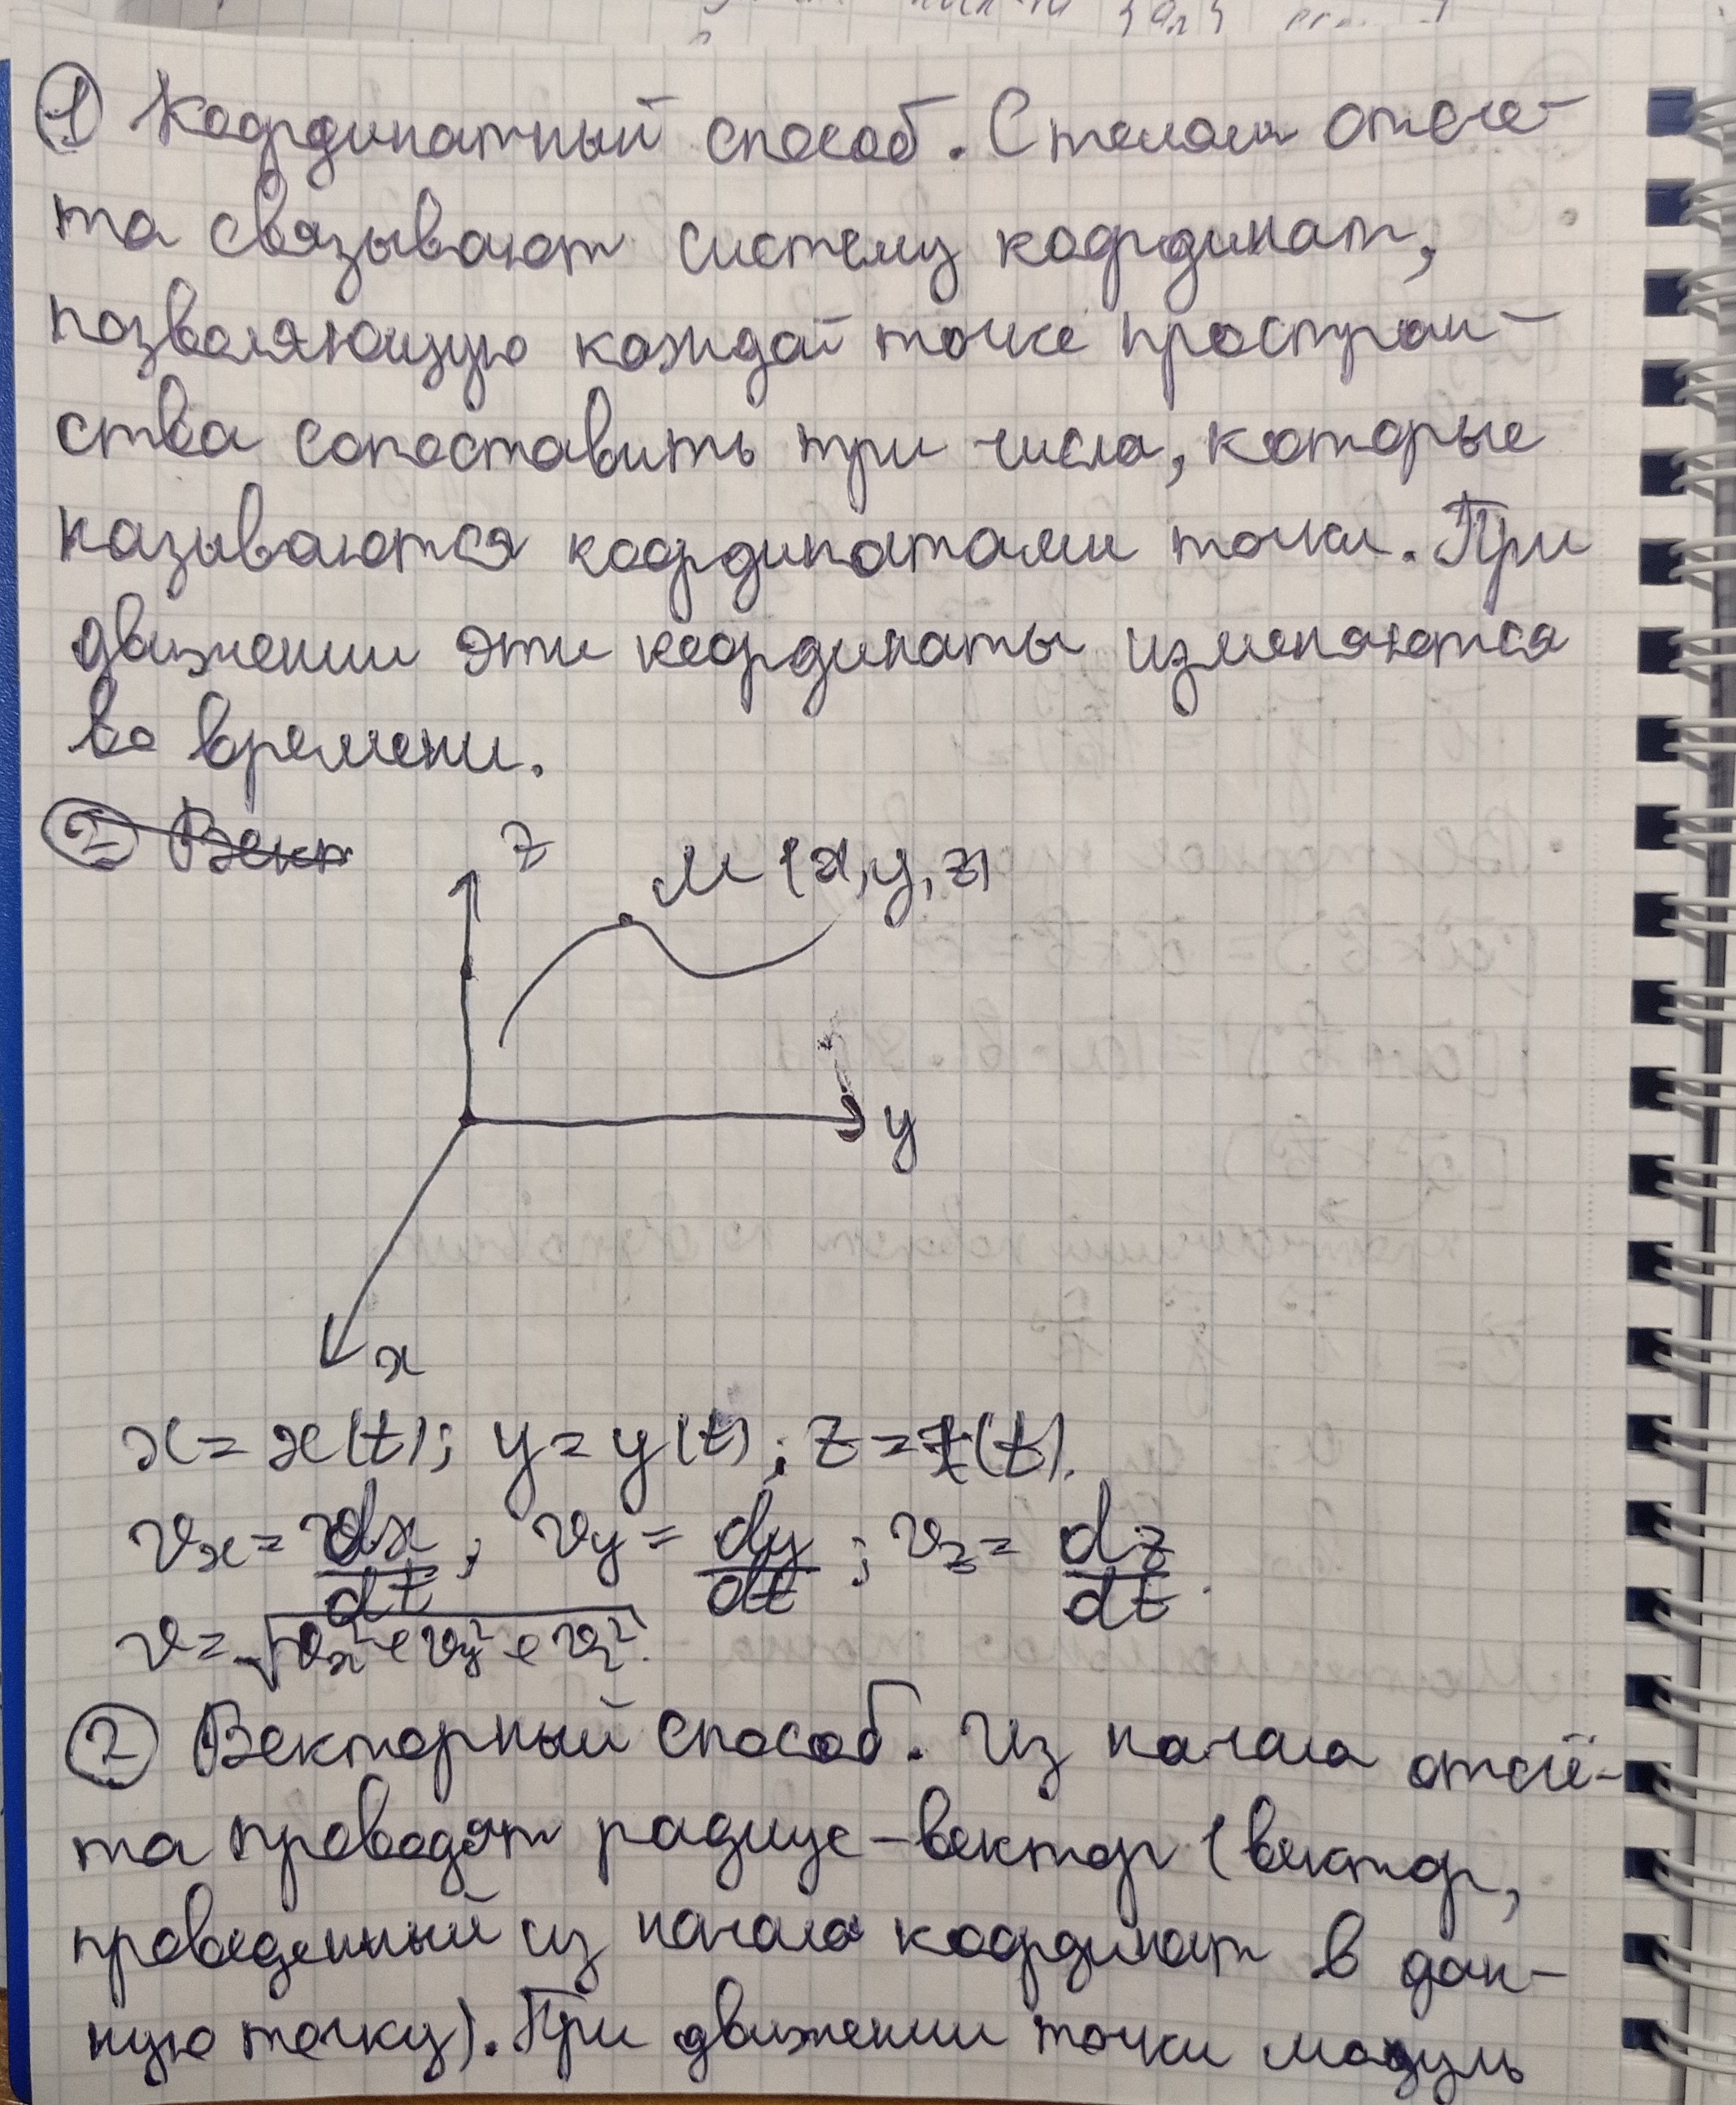 ① Координатный способ. С телом отсче-
та связывают систему координат,
позволяющую каждой точке простран-
ства сопоставить три числа, которые
называются координатами точки. При
движении эти координаты изменяются
во времени.
② Вект
z
M (x, y, z)
y
x
x = x(t); y = y(t); z = z(t).
vx = dx/dt; vy = dy/dt; vz = dz/dt.
v = √(vx² + vy² + vz²).
② Векторный способ. Из начала отсчё-
та проводят радиус-вектор (вектор,
проведенный из начала координат в дан-
ную точку). При движении точки модуль